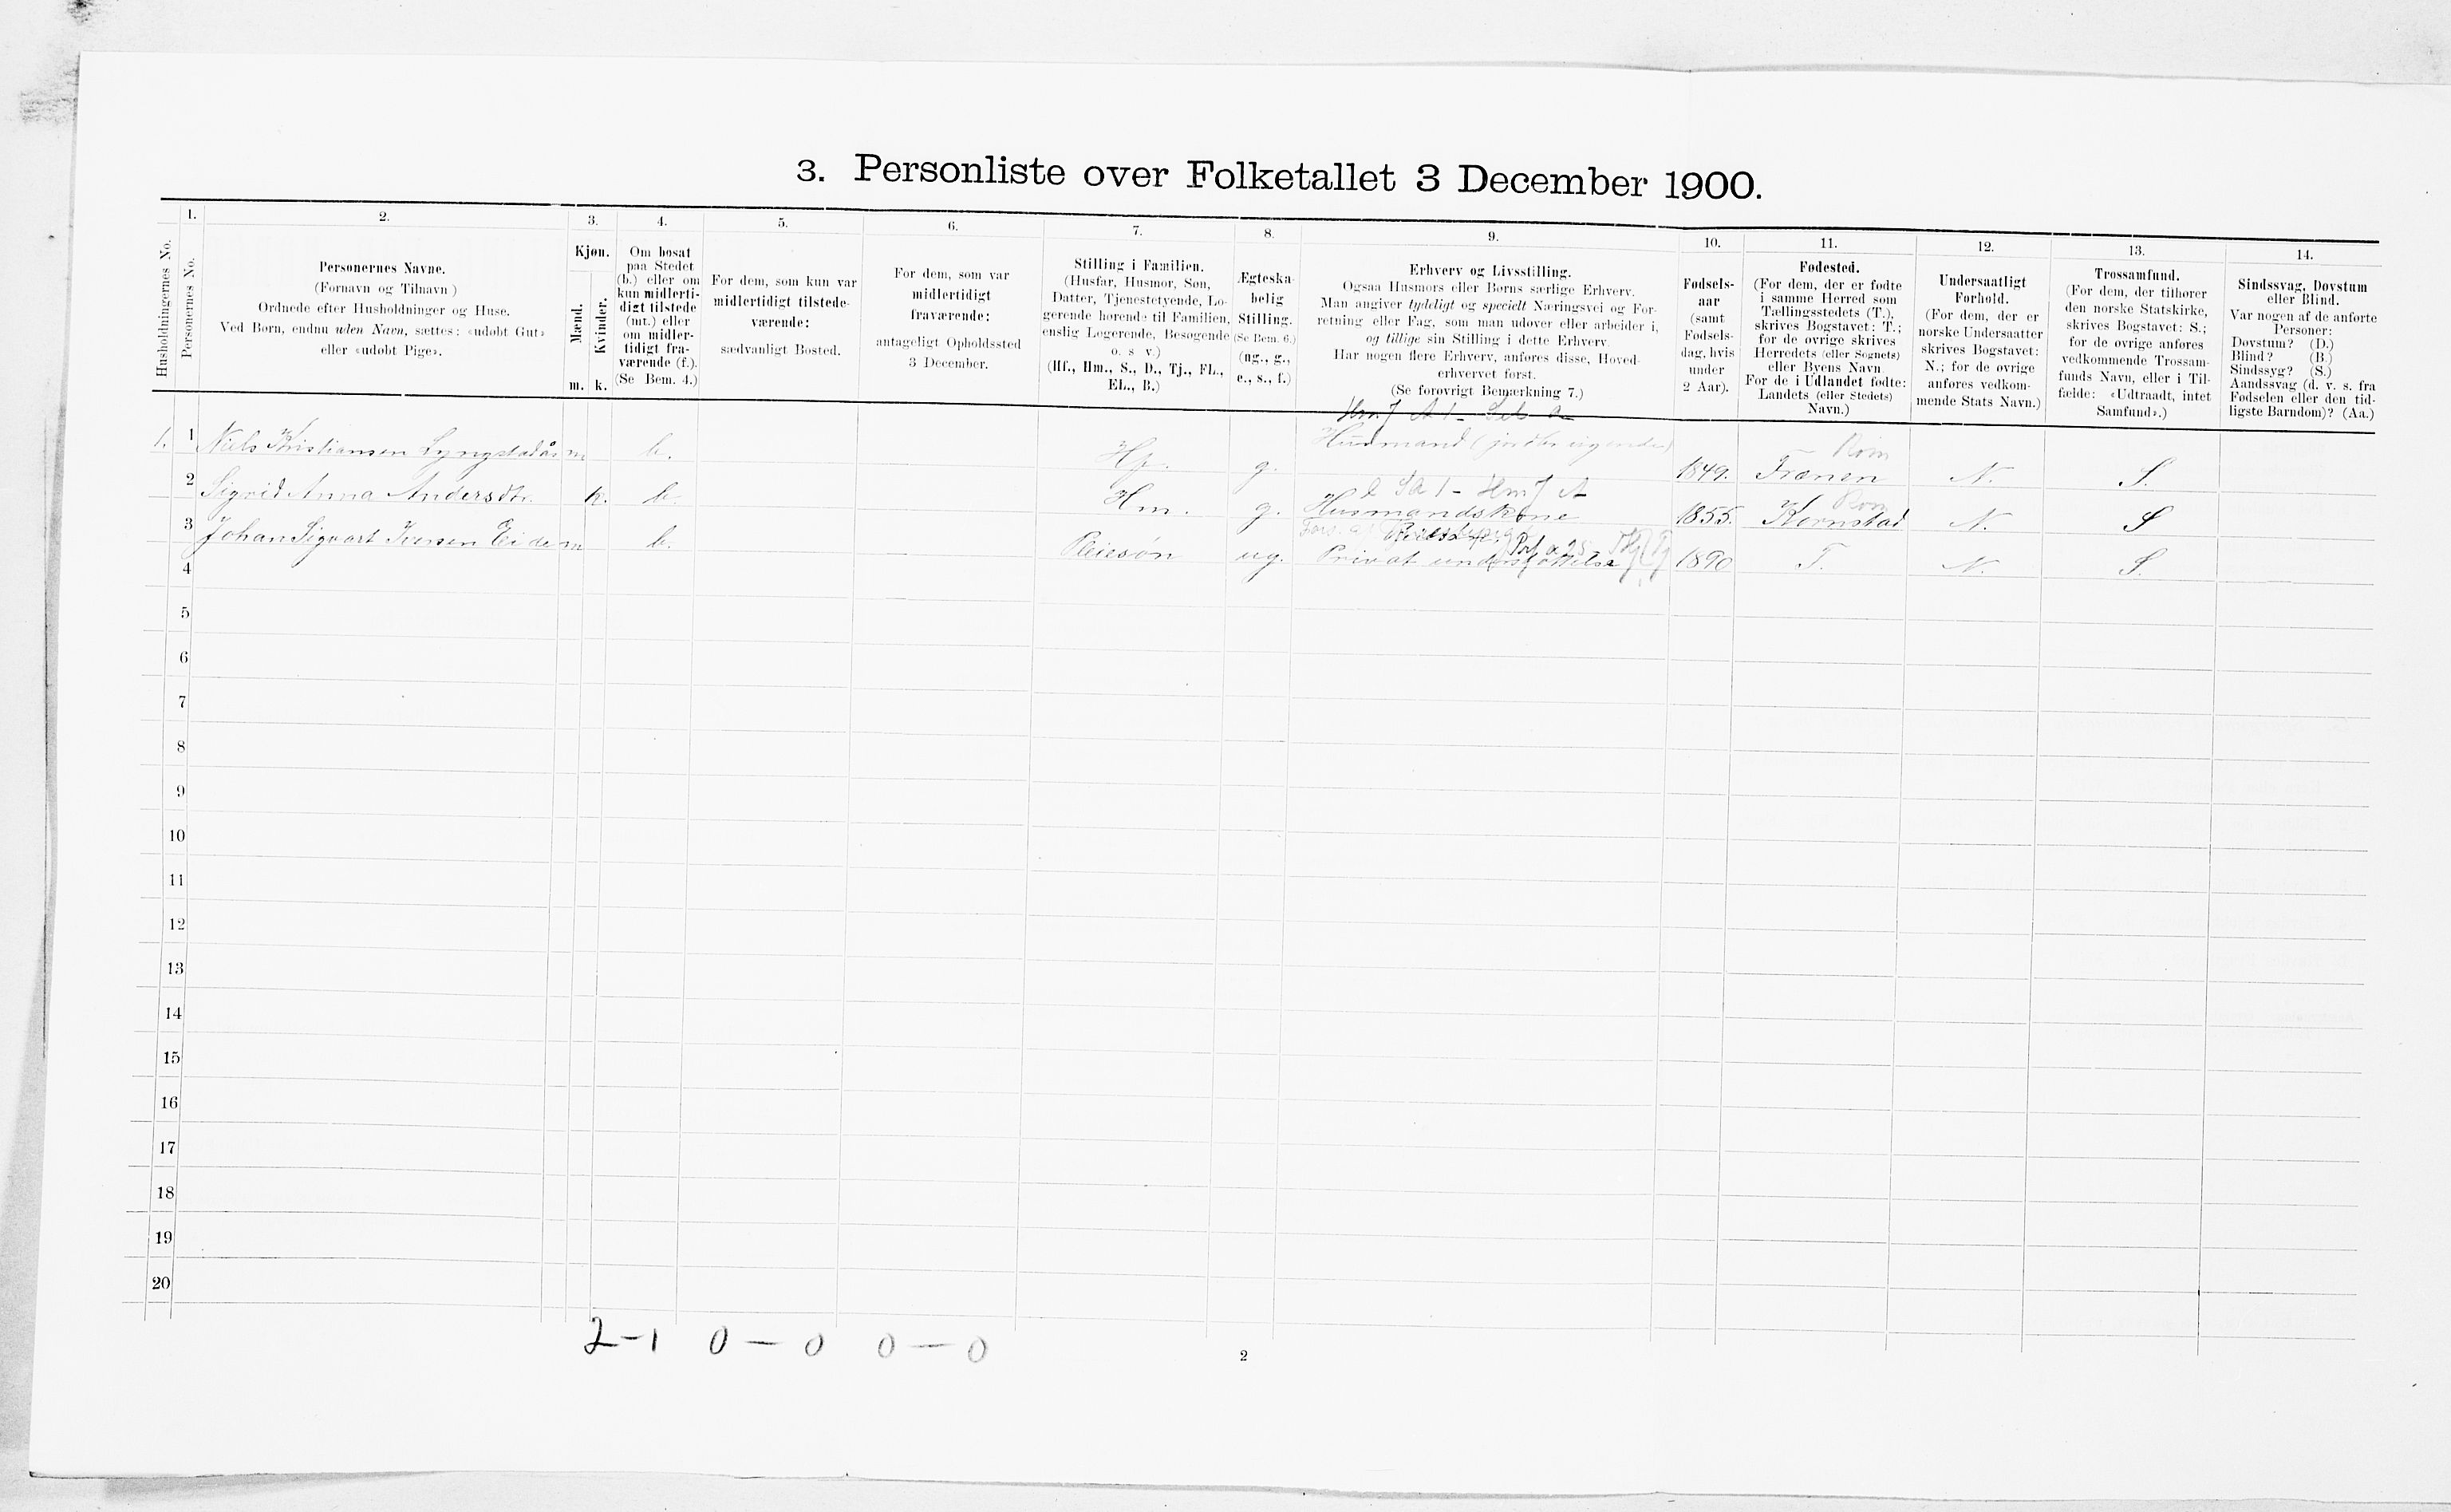 3. Personliste over Folketallet 3 December 1900.
1. 2. 3. 4. 5. 6. 7. 8. 9. 10. 11. 12. 13. 14.
Husholdningernes No.
Personernes No.
Personernes Navne.
(Fornavn og Tilnavn )
Ordnede efter Husholdninger og Huse.
Ved Børn, endnu uden Navn, sættes: «udøbt Gut»
eller «udøbt Pige».
Kjøn.
Mænd.
Kvinder.
m. k.
Om bosat
paa Stedet
(b.) eller om
kun midlerti-
digt tilstede
(mt.) eller
om midler-
tidigt fra-
værende (f.).
(Se Bem. 4.)
For dem, som kun var
midlertidigt tilstede-
værende:
sædvanligt Bosted.
For dem, som var
midlertidigt
fraværende:
antageligt Opholdssted
3 December.
Stilling i Familien.
(Husfar, Husmor, Søn,
Datter, Tjenestetyende, Lo-
gerende hørende til Familien,
enslig Logerende, Besøgende
o. s v.)
(Hf., Hm., S., D., Tj., FL.,
EL., B.)
Ægteska-
belig
Stilling.
(Se Bem. 6.)
(ug., g.,
e., s., f.)
Erhverv og Livsstilling.
Ogsaa Husmors eller Børns særlige Erhverv.
Man angiver tydeligt og specielt Næringsvei og For-
retning eller Fag, som man udøver eller arbeider i,
og tillige sin Stilling i dette Erhverv.
Har nogen flere Erhverv, anføres disse, Hoved-
erhvervet først.
(Se forøvrigt Bemærkning 7.)
Fødsels-
aar
(samt
Fødsels-
dag, hvis
under
2 Aar).
Fødested.
(For dem, der er fødte
i samme Herred som
Tællingsstedets (T.),
skrives Bogstavet: T.;
for de øvrige skrives
Herredets (eller Sognets)
eller Byens Navn.
For de i Udlandet fødte:
Landets (eller Stedets)
Navn.)
Undersaatligt
Forhold.
(For dem, der er
norske Undersaatter
skrives Bogstavet:
N.; for de øvrige
anføres vedkom-
mende Stats Navn.)
Trossamfund.
(For dem, der tilhører
den norske Statskirke,
skrives Bogstavet: S.;
for de øvrige anføres
vedkommende Trossam-
funds Navn, eller i Til-
fælde: «Udtraadt, intet
Samfund».)
Sindssvag, Døvstum
eller Blind.
Var nogen af de anførte
Personer:
Døvstum? (D.)
Blind? (B.)
Sindssyg? (S.)
Aandssvag (d. v. s. fra
Fødselen eller den tid-
ligste Barndom)? (Aa.)
Rom
1. 1 Niels Kristiansen Lyngstadås m b. Hf. g. Husmand 1849. Frænen N. S.
Rom
2 Sigrid Anna Andersdtr. k. b. Hm. g. Husmandskone 1855. Kornstad N. S
3 Johan Sigvart Iversen Eide m b. Pleiesøn ug. Privat understøttelse 1890 T. N. S.
4
5
6
7
8
9
10
11
12
13
14
15
16
17
18
19
20
2-1 0 — 0 0 — 0
2